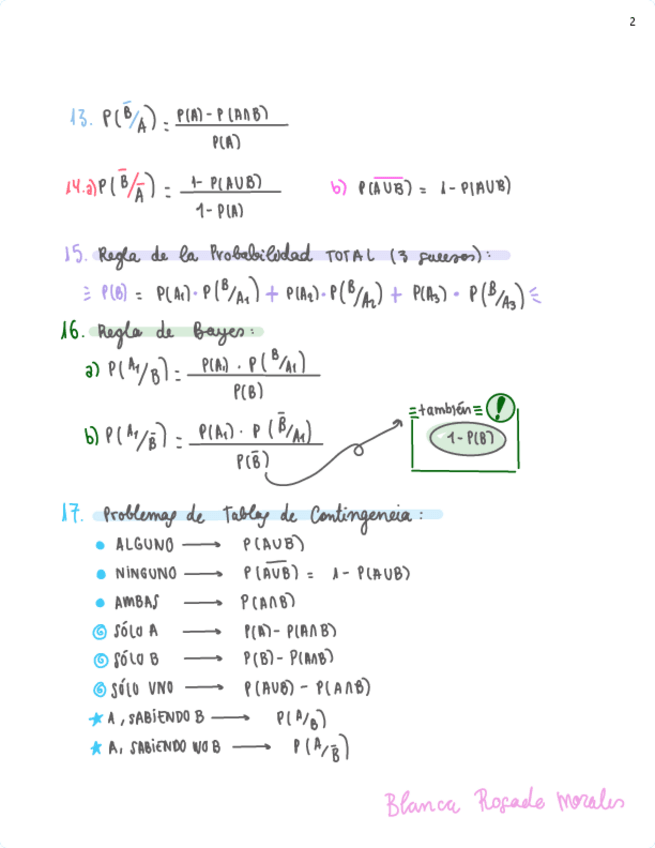 2
13. P(B̅/A) = P(A) - P(A∩B) / P(A)
14.a) P(B̅/A̅) = 1 - P(A∪B) / 1 - P(A) b) P(A̅∪̅B̅) = 1 - P(A∪B)
15. Regla de la Probabilidad TOTAL (3 sucesos):
P(B) = P(A₁) · P(B/A₁) + P(A₂) · P(B/A₂) + P(A₃) · P(B/A₃)
16. Regla de Bayes:
a) P(A₁/B) = P(A₁) · P(B/A₁) / P(B)
b) P(A₁/B̅) = P(A₁) · P(B̅/A₁) / P(B̅)
también !
1 - P(B)
17. Problemas de Tablas de Contingencia:
• ALGUNO → P(A∪B)
• NINGUNO → P(A̅∪̅B̅) = 1 - P(A∪B)
• AMBAS → P(A∩B)
SÓLO A → P(A) - P(A∩B)
SÓLO B → P(B) - P(A∩B)
SÓLO UNO → P(A∪B) - P(A∩B)
★ A, SABIENDO B → P(A/B)
★ A, SABIENDO NO B → P(A/B̅)
Blanca Rosado Morales